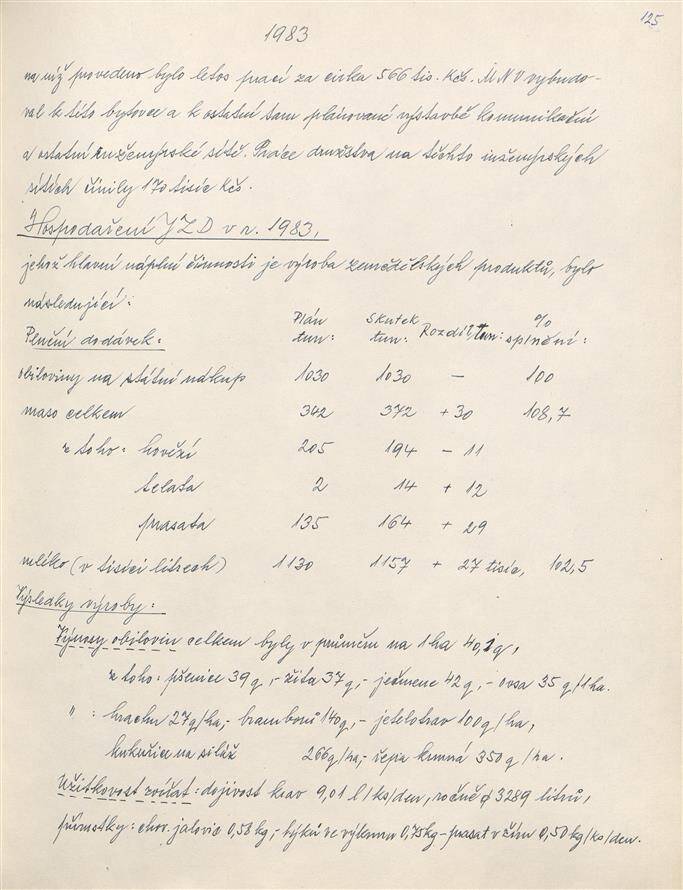 125
1983
na níž provedeno bylo letos prací za cirka 566 tis. Kčs. MNV vybudo-
val k této bytovce a k ostatní tam plánované výstavbě komunikační
a ostatní inženýrské sítě. Práce družstva na těchto inženýrských
sítích činily 170 tisíc Kčs.
Hospodaření JZD v r. 1983,
jehož hlavní náplní činnosti je výroba zemědělských produktů, bylo
následující:
Plnění dodávek: Plán tun: Skutek tun: Rozdíl, tun: % splnění:
obiloviny na státní nákup 1030 1030 — 100
maso celkem 342 372 + 30 108,7
z toho: hovězí 205 194 - 11
telata 2 14 + 12
prasata 135 164 + 29
mléko (v tisíci litrech) 1130 1157 + 27 tisíc, 102,5
Výsledky výroby:
Výnosy obilovin celkem byly v průměru na 1 ha 40,1 q,
z toho: pšenice 39 q,- žita 37 q,- ječmene 42 q,- ovsa 35 q/1 ha.
" : hrachu 27 q/ha,- bramborů 140 q,- jetelotrav 100 q/ha,
kukuřice na siláž 266 q/ha,- řepa krmná 350 q/ha.
Užitkovost zvířat: dojivost krav 9,01 l/ks/den, ročně ϕ 3289 litrů,
přírůstky: chov. jalovic 0,58 kg,- býků ve výkrmu 0,75 kg - prasat v žíru 0,50 kg/ks/den.